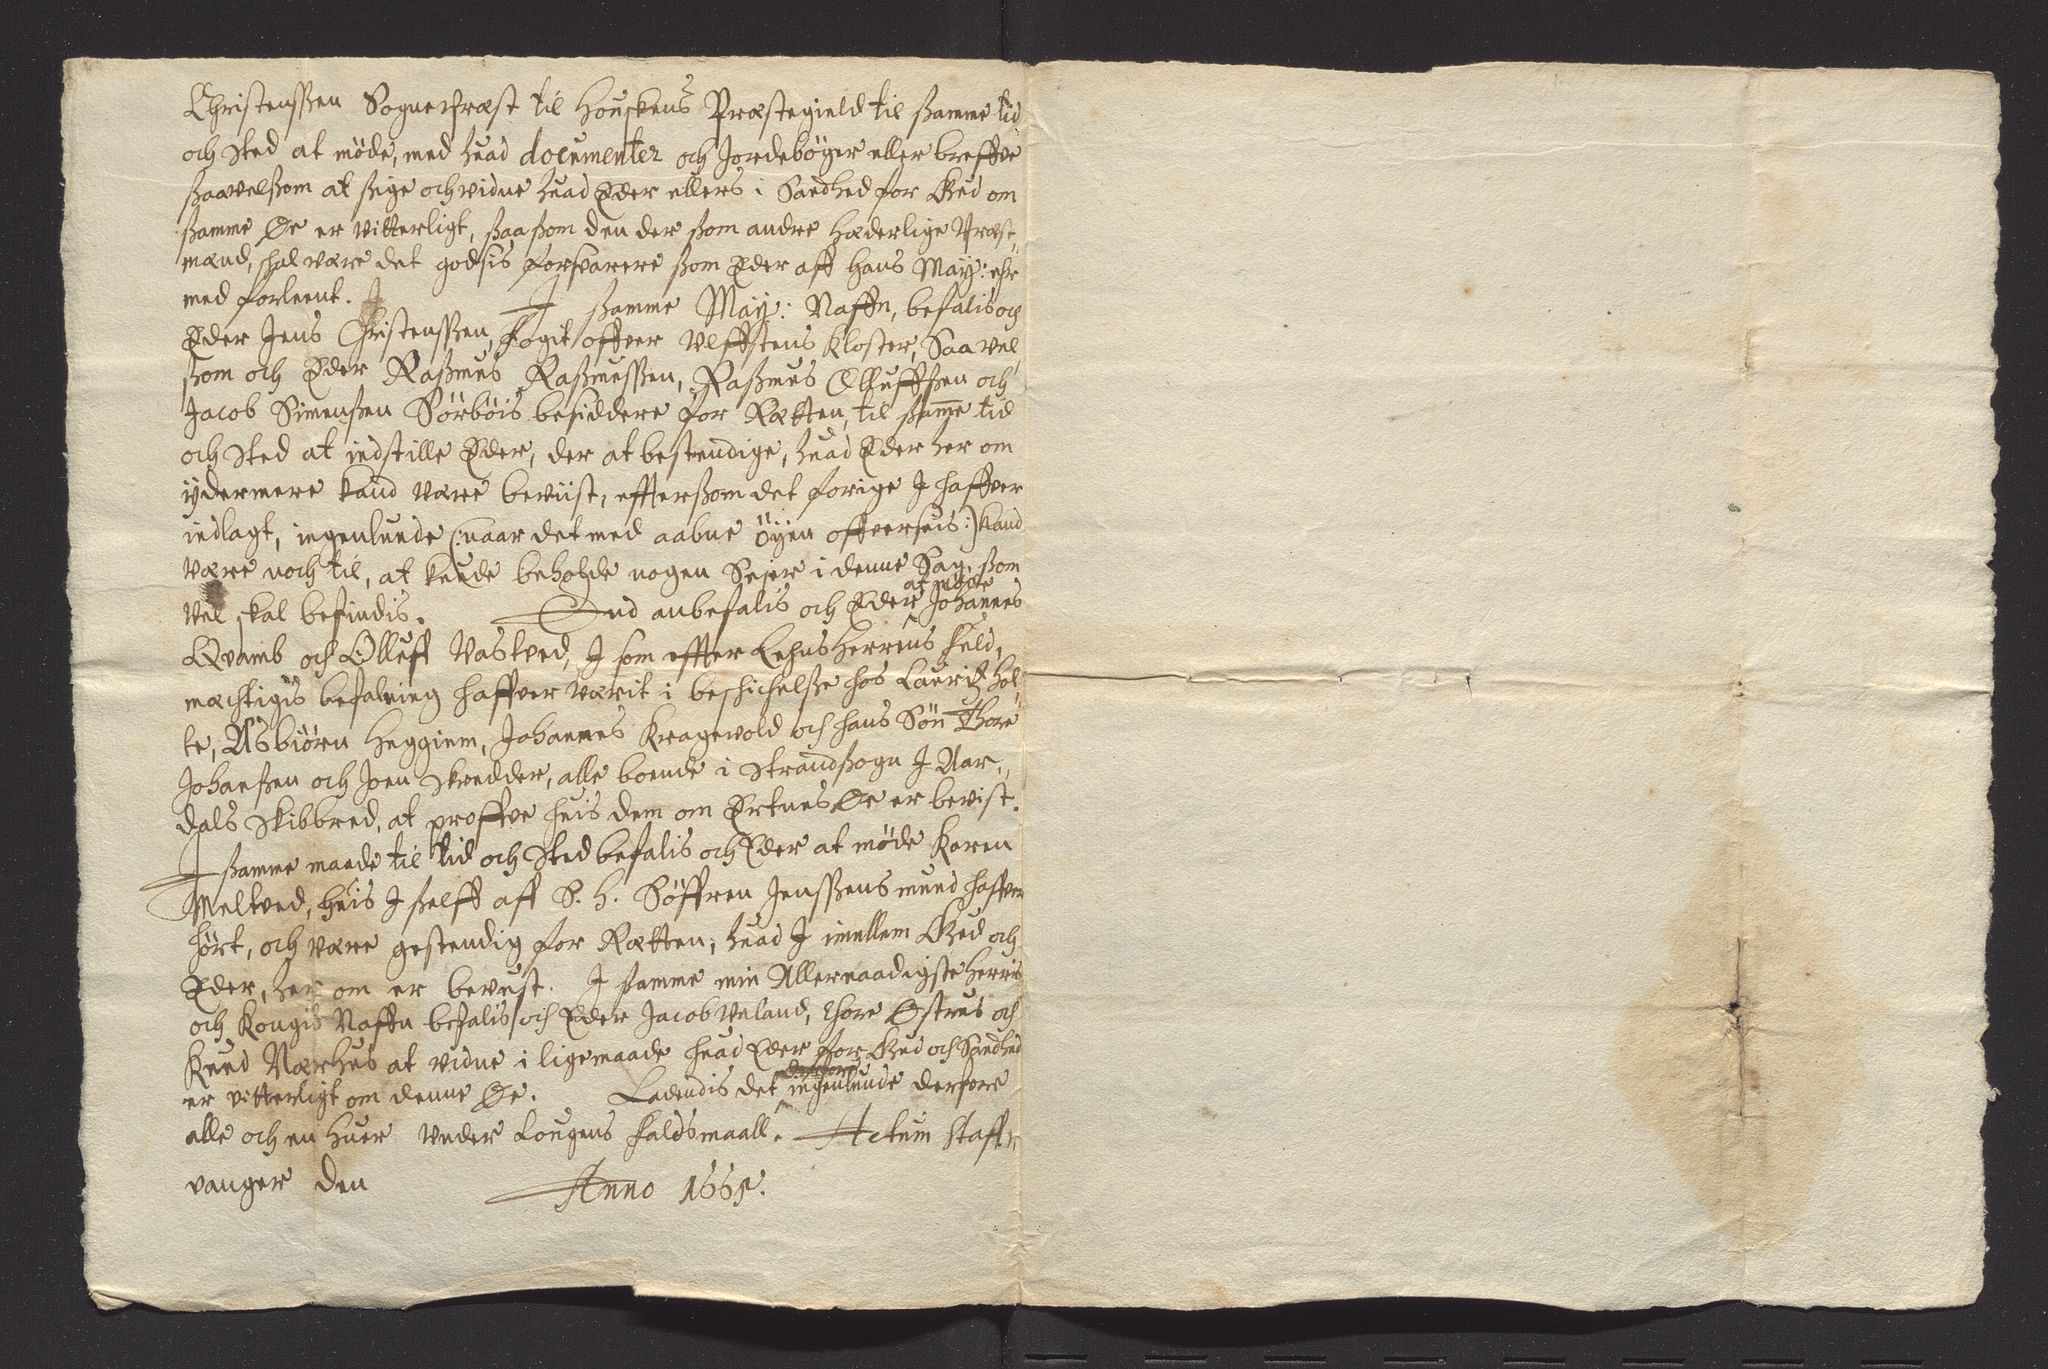 Christenssen Sognepræst til Houskens Præstegield til ßamme tid
och sted at møde, med huad documenter och Jordebøger eller breffve
ßaavelßom at sige och vidne huad Eder ellers i Sandhed for Gud om
ßamme Øe er vitterligt, ßaa ßom den der ßom andre hæderlige Præst,
mænd, skal være det godsis forsvarere ßom Eder aff Hans May: ehr
med forleent. I ßamme May: Naffn, befalis och
Eder Jens Christenssen, Fogit offver Vlffstens Kloster, Saa vel
ßom och Eder Raßmus Raßmussen, Raßmus Olluffßen och
Jacob Simenßen Sörböis besiddere for Rætten, til ßamme tid
och sted at indstille Eder, der at bestendige, huad Eder her om
ÿdermere kand være beviist, effterßom det forige I haffver
indlagt, ingenlunde (:naar det med aabne öÿen offversees:) kand
være noch til, at kunde beholde nogen Sejer i denne Sag, ßom
vel skal befindis. End anbefalis och Eder at møde Johannes
Qvamb och Olluff Vastved, I som effter Lehns Herrens fuld,
mechtigis befalning haffver værit i beschichelße hos Lauritz Hol,
te, Asbiörn Heggiem, Johannes Kragevold och hans Sön Thore
Johanßen och Joen Skredder, alle boende i Strandßogn I Aar,,
dals Skibbred, at pröffve huis dem om Ertnes Øe er bevist.
I ßamme maade til tid och sted befalis och Eder at møde Karen
Meltved, huis I ßelff aff S. H. Söffren Jenssens mund haffver
hört, och være gestendig for Rætten, huad I imellem Gud och
Eder, her om er bevust. I samme min Allernaadigste Herris
och Kongis Naffn befalis och Eder Jacob Veland, Thore Østrus och
Knud Nærhus at vidne i ligemaade huad Eder for Gud och Sandhed
er vitterligt om denne Øe. Ladendis det ingenlunde derfore
alle och en huer vnder Lougens Faldsmaall. Actum Staff,
vanger den Anno 1665.